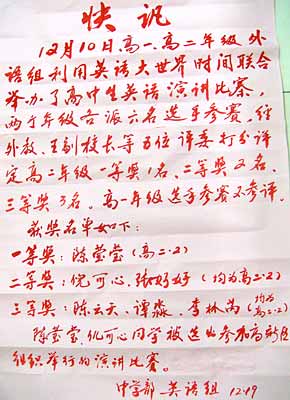 快讯
12月10日高一.高二年级外
语组利用英语大世界时间联合
举办了高中生英语演讲比赛,
两个年级各派六名选手参赛,经
外教、王副校长等五位评委打分评
定高二年级一等奖1名、二等奖2名、
三等奖3名。高一年级选手参赛不参评。
获奖名单如下:
一等奖:陈莹莹(高二·2)
二等奖:倪可心、张好好(均为高二·2)
三等奖:陈云天、谭淼、李林芮(均为高二·2)
陈莹莹、倪可心同学被选出参加高新区
组织举行的演讲比赛。
中学部 英语组 12.19